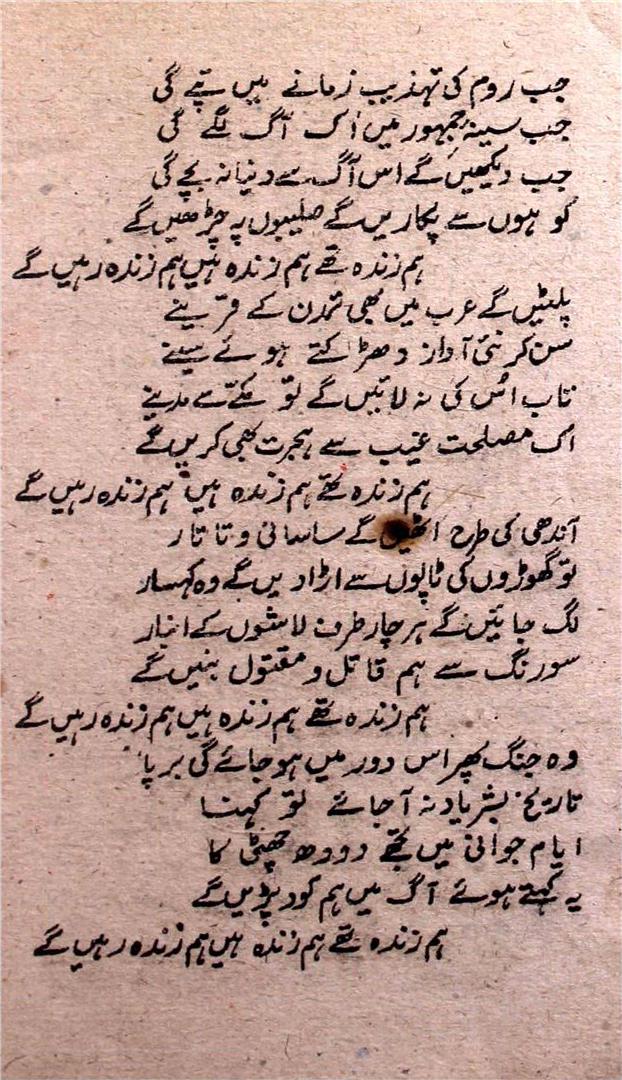 جب روم کی تہذیب زمانے میں تپے گی
جب سینۂ جمہور میں اک آگ لگے گی
جب دیکھیں گے اس آگ سے دنیا نہ بچے گی
کوہوں سے پکاریں گے صلیبوں پہ چڑھیں گے
ہم زندہ تھے ہم زندہ ہیں ہم زندہ رہیں گے
پلٹیں گے عرب میں بھی تمدن کے قرینے
سن کر نئی آواز دھڑکتے ہوئے سینے
تاب اُس کی نہ لائیں گے تو مکے سے مدینے
اک مصلحت غیب سے ہجرت بھی کریں گے
ہم زندہ تھے ہم زندہ ہیں ہم زندہ رہیں گے
آندھی کی طرح اٹھیں گے ساسانی و تاتار
تو گھوڑوں کی ٹاپوں سے اڑا دیں گے وہ کہسار
لگ جائیں گے ہر چار طرف لاشوں کے انبار
سو رنگ سے ہم قاتل و مقتول بنیں گے
ہم زندہ تھے ہم زندہ ہیں ہم زندہ رہیں گے
وہ جنگ پھر اس دور میں ہو جائے گی برپا
تاریخ بشر یاد نہ آ جائے تو کہنا
ایام جوانی میں تجھے دودھ چھٹی کا
یہ کہتے ہوئے آگ میں ہم کود پڑیں گے
ہم زندہ تھے ہم زندہ ہیں ہم زندہ رہیں گے